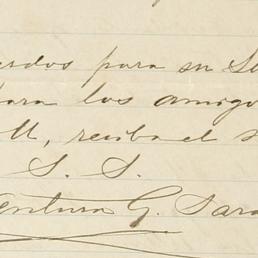 erdos para su Se
para los amigo
M, reciba el s
S. S.
entura G. Sara